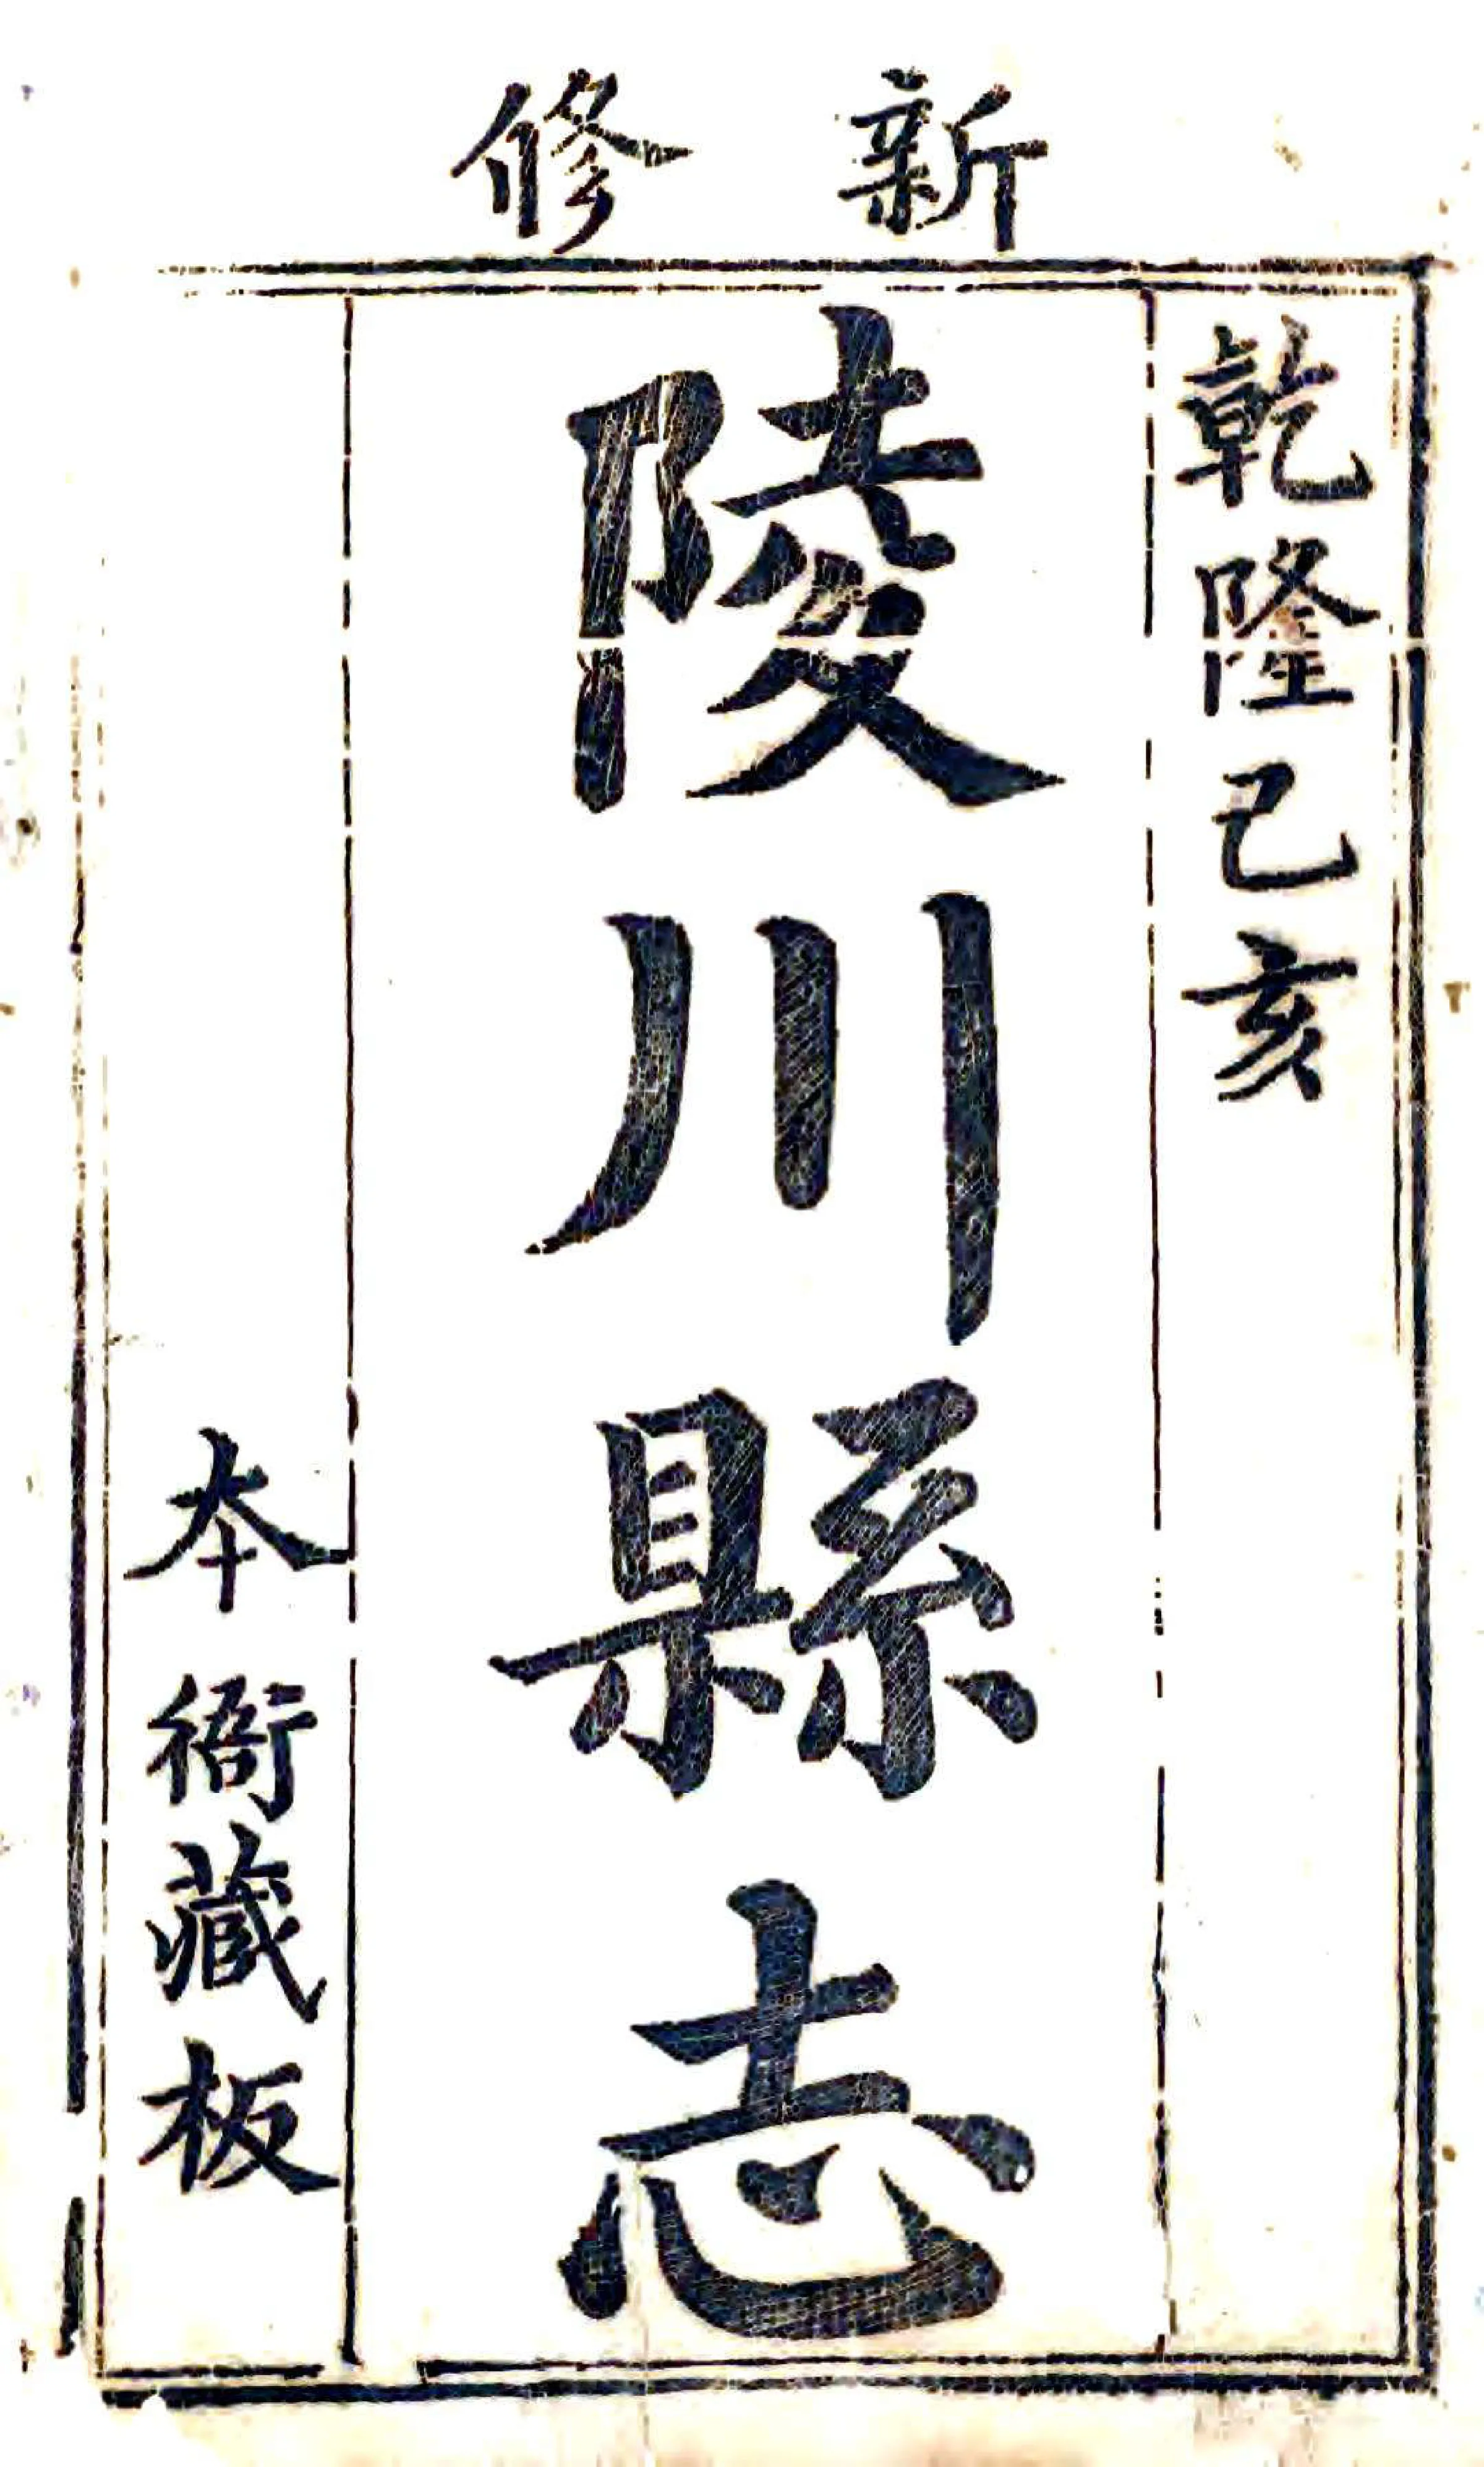 新修
乾隆己亥
陵川縣志
本衙藏板